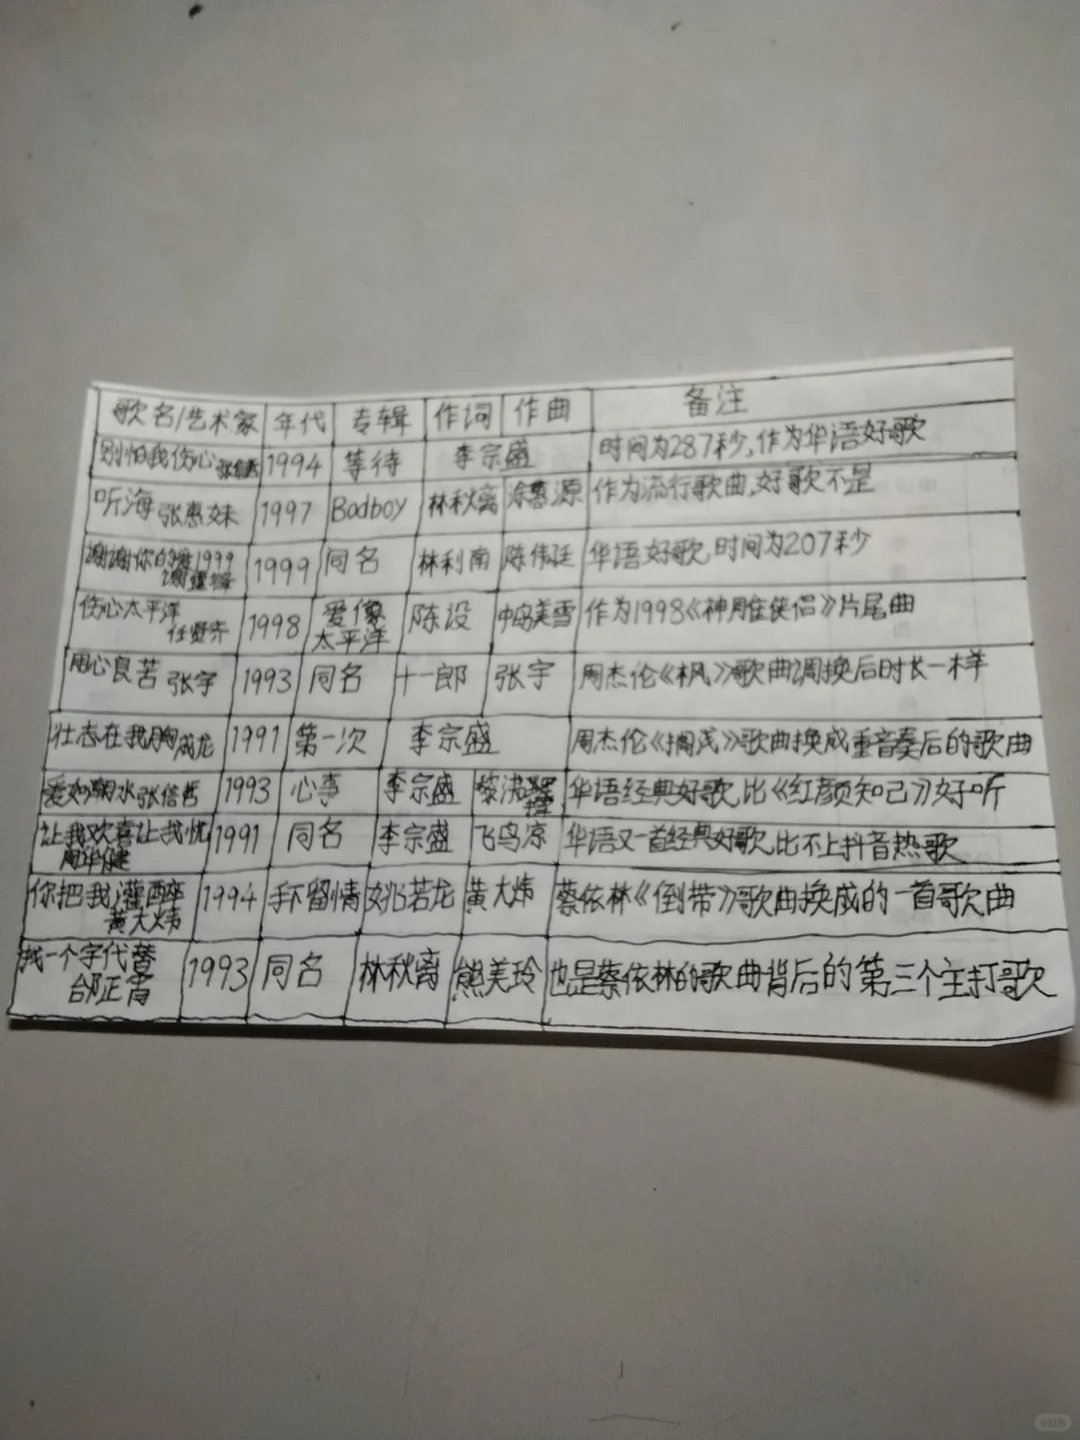 歌名/艺术家 年代 专辑 作词 作曲 备注
别怕我伤心 张信哲 1994 等待 李宗盛 时间为287秒,作为华语好歌
听海 张惠妹 1997 Badboy 林秋离 涂惠源 作为流行歌曲,好歌不是
谢谢你的爱1999 谢霆锋 1999 同名 林利南 陈伟廷 华语好歌,时间为207秒
伤心太平洋 任贤齐 1998 爱像太平洋 陈设 中岛美雪 作为1998《神雕侠侣》片尾曲
用心良苦 张宇 1993 同名 十一郎 张宇 周杰伦《枫》歌曲调换后时长一样
壮志在我胸 成龙 1991 第一次 李宗盛 周杰伦《搁浅》歌曲换成重音奏后的歌曲
爱如潮水 张信哲 1993 心事 李宗盛 黎沸挥 华语经典好歌,比《红颜知己》好听
让我欢喜让我忧 周华健 1991 同名 李宗盛 飞鸟凉 华语又一首经典好歌,比不上抖音热歌
你把我灌醉 黄大炜 1994 手不留情 姚若龙 黄大炜 蔡依林《倒带》歌曲换成的一首歌曲
找一个字代替 邰正宵 1993 同名 林秋离 熊美玲 也是蔡依林的歌曲背后的第三个主打歌